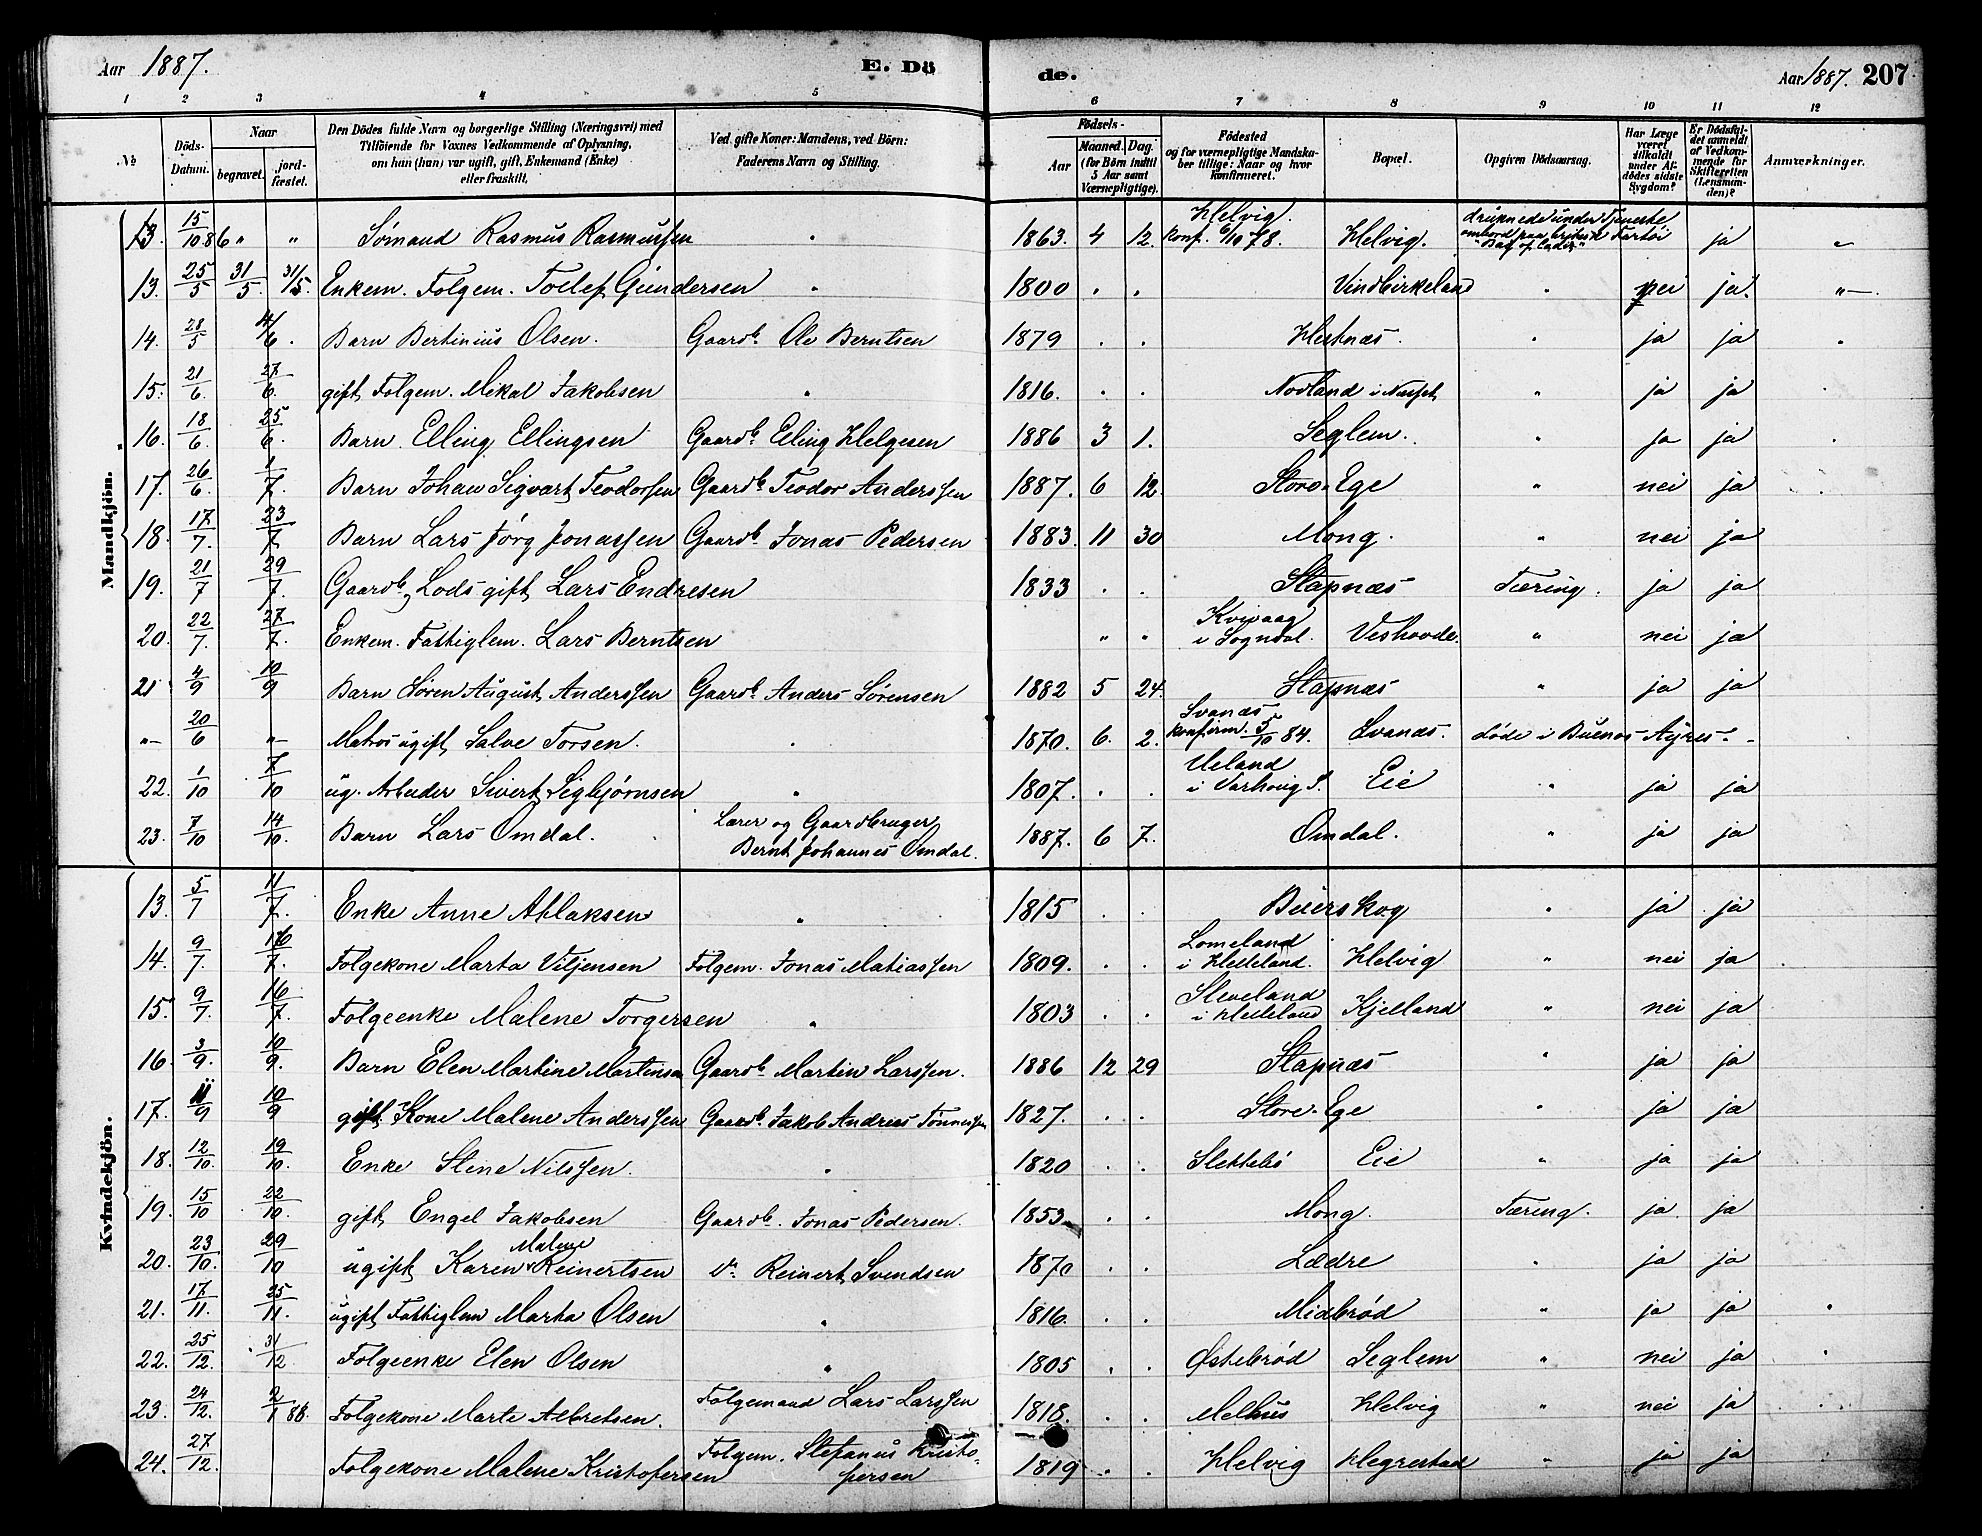 Aar 1887. E. Dö de. Aar 1887. 207
1 2 3 4 5 6 7 8 9 10 11 12
№ Döds-Datum. Naar begravet. jordfæstet. Den Dödes fulde Navn og borgerlige Stilling (Næringsvei) med Tilföiende for Voxnes Vedkommende af Oplysning, om han (hun) var ugift, gift, Enkemand (Enke) eller fraskilt. Ved gifte Koner: Mandens, ved Börn: Faderens Navn og Stilling. Födsels- Aar Maaned. Dag. (for Börn indtil 5 Aar samt Værnepligtige). Födested og for værnepligtige Mandskaber tillige: Naar og hvor konfirmeret. Bopæl. Opgiven Dödsaarsag. Har Læge været tilkaldt under Afdödes sidste Sygdom? Er Dödsfaldet anmeldt af Vedkommende for Skifteretten (Lensmanden)? Anmærkninger.
Mandkjön.
13. 15/10 86 " " Sömand Rasmus Rasmussen " 1863. 4 12. Helvig. konf. 6/10 78. Helvig. druknede under Tjeneste ombord paa britisk Fartöi ja "
13. 25/5 31/5. 31/5. Enkem. Folgem. Tollef Gundersen " 1800 " " Vindbirkeland " nei ja. "
14. 28/5 4/6. Barn Bertinius Olsen. Gaardb. Ole Berntsen 1879 . . Hestnæs. " ja ja "
15. 21/6. 27/6. gift Folgem. Mikal Jakobsen " 1816. . . Nodland i " ja ja
16. 18/6. 25/6. Barn Elling Ellingsen Gaardb. Elling Helgesen 1886 3 1. Seglem. " ja ja
17. 26/6. 1/7. Barn Johan Sigvart Teodorsen Gaardb. Teodor Anderssen 1887. 6 12 Store-Ege " nei ja
18. 17/7. 23/7. Barn Lars Jörg Jonassen Gaardb. Jonas Pedersen 1883. 11 30 Mong. " nei ja
19. 21/7 29/7. Gaardb. Lods gift Lars Endresen 1833 . . Stapnæs Tæring. ja ja
20. 22/7. 27/7. Enkem. Fattiglem. Lars Berntsen " " Kvivaag i Sogndal. Veshovde. " nei ja
21 4/9 10/9 Barn Sören August Anderssen Gaardb. Anders Sörensen 1882 5 24. Stapnæs " ja ja
" 20/6 " Matros ugift Salve Torsen. " 1870. 6. 2. Svanæs konfirm. 5/10 84. Svanæs. döde i Buenos Ayres.
22. 1/10 7/10 ug. Arbeider Sivert Sigbjörnsen " 1807. . . Ueland i Varhoug S. Eie " ja ja
23. 7/10 14/10. Barn Lars Omdal. Lærer og Gaardbruger Bernt Johannes Omdal. 1887. 6 7. Omdal. " ja ja
Kvindekjön.
13. 5/7 11/7. Enke Anne Aslaksen " 1815 . . Buerskog " ja ja
14. 9/7. 16/7. Folgekone Marta Viljensen Folgem. Jonas Matiassen 1809. . . Lomeland i Helleland. Helvig " nei ja
15. 9/7. 16/7. Folgeenke Malene Torgersen " 1803 . . Sleveland i Helleland Kjelland " nei ja
16. 3/9. 10/9. Barn Elen Martine Martinsen Gaardb. Martin Larssen. 1886 12 29 Stapnæs " ja ja
17. /9 10/9 gift Kone Malene Anderssen Gaardb. Jakob Andreas Tönnessen 1827. . . Store-Ege " ja ja
18. 12/10. 19/10. Enke Stine Nilssen. " 1820 . . Slettebö Eie " ja ja
19. 15/10 22/10. gift Engel Jakobsen Gaardb. Jonas Pedersen. 1853 . . Mong. Tæring. ja ja
20. 23/10. 29/10 ugift Karen Malene Reinertsen Reinert Svendsen 1870 . . Lædre " ja ja
21. 17/11. 25/11. ugift Fattiglem Marta Olsen " 1816. . . Midbröd " ja ja "
22. 25/12. 31/12 Folgeenke Elen Olsen " 1805 . . Östebröd Seglem " nei ja "
23. 24/12. 2/1 88. Folgekone Marte Albretsen. Folgemand Lars Larssen 1818. . . Melhus Helvig " nei ja
24. 27/12. Folgekone Malene Kristofersen Folgem. Stefanus Kristofersen 1819 . . Helvig Hegrestad " ja ja